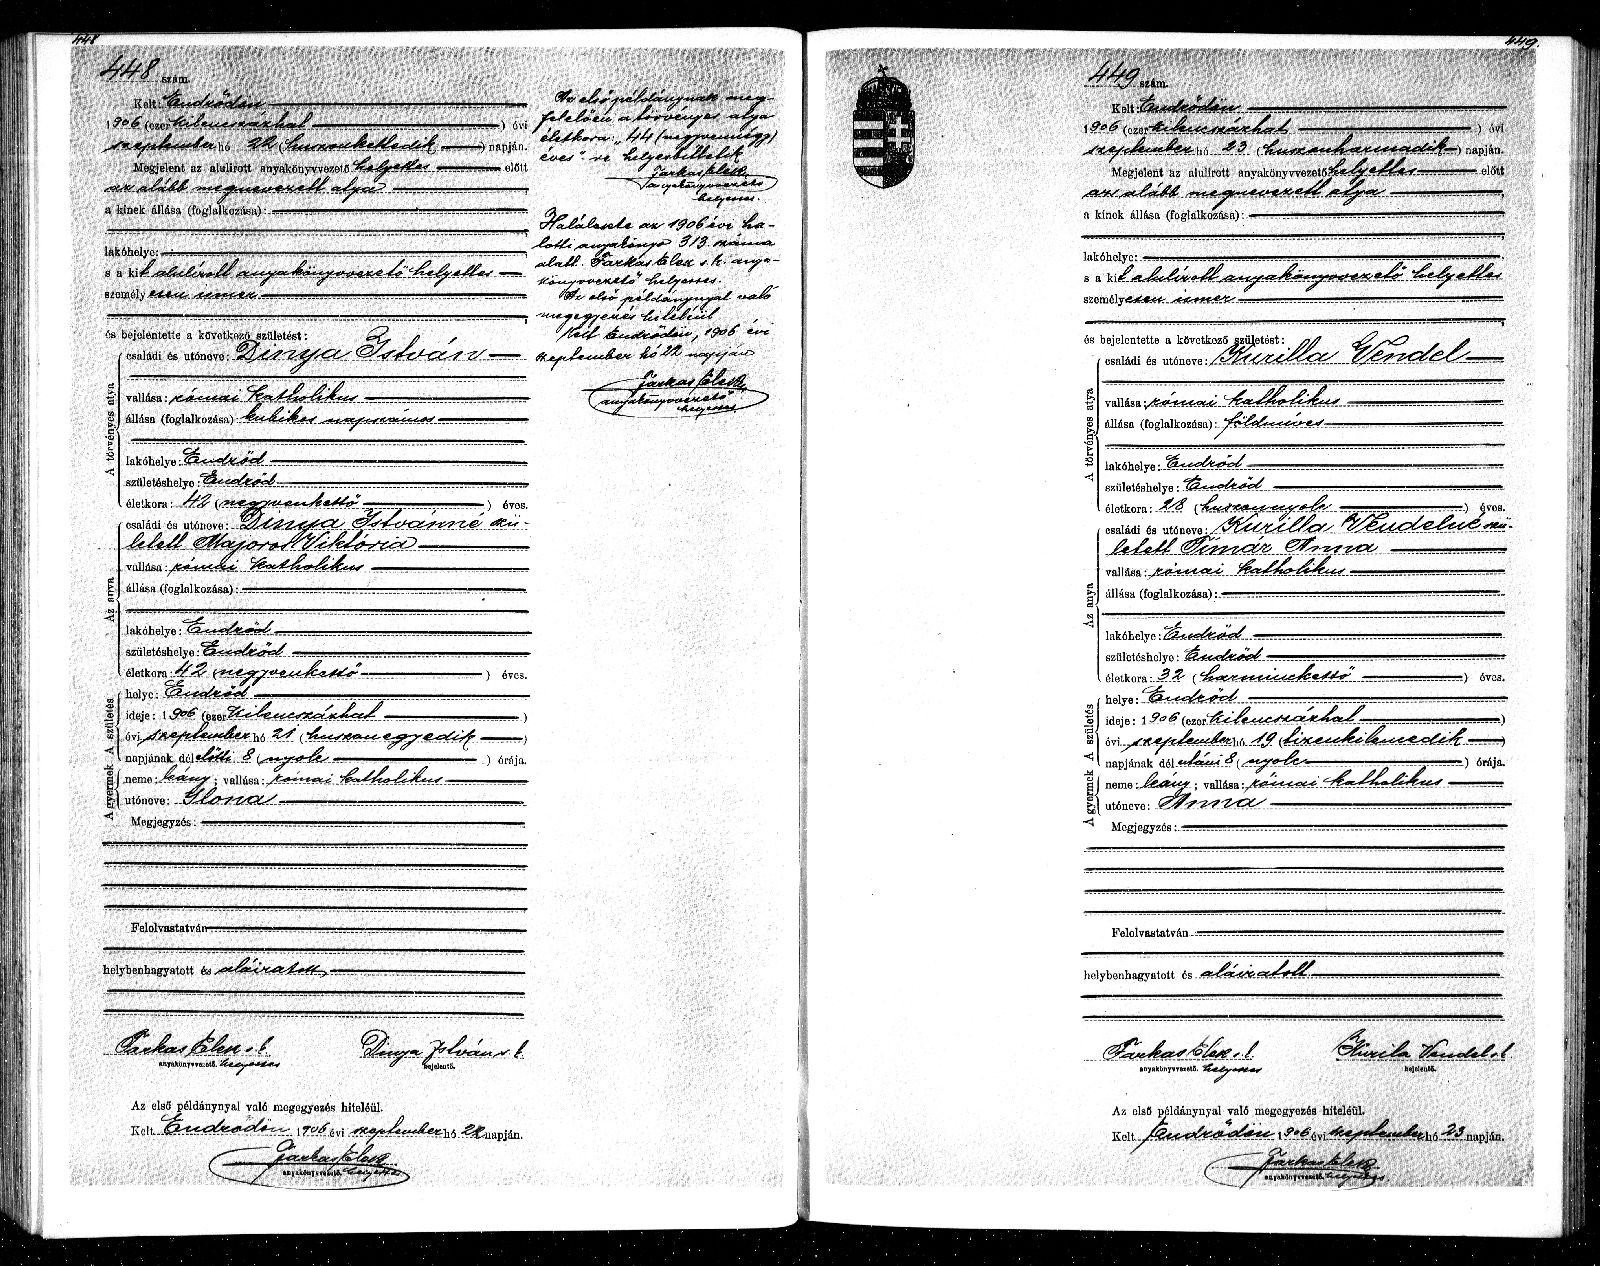 448
448 szám.
Kelt: Endrődön
1906 (ezerkilencszázhat ) évi
szeptember hó 22 (huszonkettedik ) napján.
Megjelent az alulirott anyakönyvvezető helyettes előtt
az alább megnevezett atya
a kinek állása (foglalkozása):
lakóhelye:
s a kit alulírott anyakönyvvezető helyettes
személyesen ismer
és bejelentette a következő születést:
A törvényes atya
családi és utóneve: Dinya István
vallása: római katholikus
állása (foglalkozása) kubikos napszámos
lakóhelye: Endrőd
születéshelye: Endrőd
életkora: 42 (negyvenkettő ) éves.
Az anya
családi és utóneve: Dinya Istvánné szü-
letett Majoros Viktória
vallása: római katholikus
állása (foglalkozása):
lakóhelye: Endrőd
születéshelye: Endrőd
életkora: 42 (negyvenkettő ) éves.
A születés
helye: Endrőd
ideje: 1906 (ezerkilencszázhat )
évi szeptember hó 21 (huszonegyedik )
napjának dél előtti 8 (nyolc ) órája.
A gyermek
neme: leány; vallása: római katholikus
utóneve: Ilona
Megjegyzés:
Felolvastatván
helybenhagyatott és aláiratott
Farkas Elek s. k. Dinya István s. k.
anyakönyvvezető. helyettes bejelentő.
Az első példánynyal való megegyezés hiteléül.
Kelt Endrődön 1906 évi szeptember hó 22 napján.
Farkas Elek
anyakönyvvezető. helyettes
Az első példánynak meg-
felelően a törvényes atya
életkora: „44 (negyvennégy)
éves"-re helyesbittetik
Farkas Elek
anyakönyvvezető
helyettes.
Halálesete az 1906 évi ha-
lotti anyakönyv 313. száma
alatt. Farkas Elek s. k. anya-
könyvvezető helyettes.
Az első példánynyal való
megegyezés hiteléül
Kelt Endrődön, 1906 évi
szeptember hó 22 napján
Farkas Elek
anyakönyvvezető
helyettes
449.
449 szám.
Kelt: Endrődön
1906 (ezerkilencszázhat ) évi
szeptember hó 23 (huszonharmadik ) napján.
Megjelent az alulirott anyakönyvvezető helyettes előtt
az alább megnevezett atya
a kinek állása (foglalkozása):
lakóhelye:
s a kit alulírott anyakönyvvezető helyettes
személyesen ismer
és bejelentette a következő születést:
A törvényes atya
családi és utóneve: Kurilla Vendel
vallása: római katholikus
állása (foglalkozása): földmíves
lakóhelye: Endrőd
születéshelye: Endrőd
életkora: 28 (huszonnyolc ) éves.
Az anya
családi és utóneve: Kurilla Vendelné szü-
letett Tímár Anna
vallása: római katholikus
állása (foglalkozása):
lakóhelye: Endrőd
születéshelye: Endrőd
életkora: 32 (harminckettő ) éves.
A születés
helye: Endrőd
ideje: 1906 (ezerkilencszázhat )
évi szeptember hó 19 (tizenkilencedik )
napjának dél utáni 8 (nyolc ) órája.
A gyermek
neme: leány; vallása: római katholikus
utóneve: Anna
Megjegyzés:
Felolvastatván
helybenhagyatott és aláiratott
Farkas Elek s. k. Kurila Vendel s. k.
anyakönyvvezető. helyettes bejelentő.
Az első példánynyal való megegyezés hiteléül.
Kelt Endrődön 1906 évi szeptember hó 23 napján.
Farkas Elek
anyakönyvvezető. helyettes.